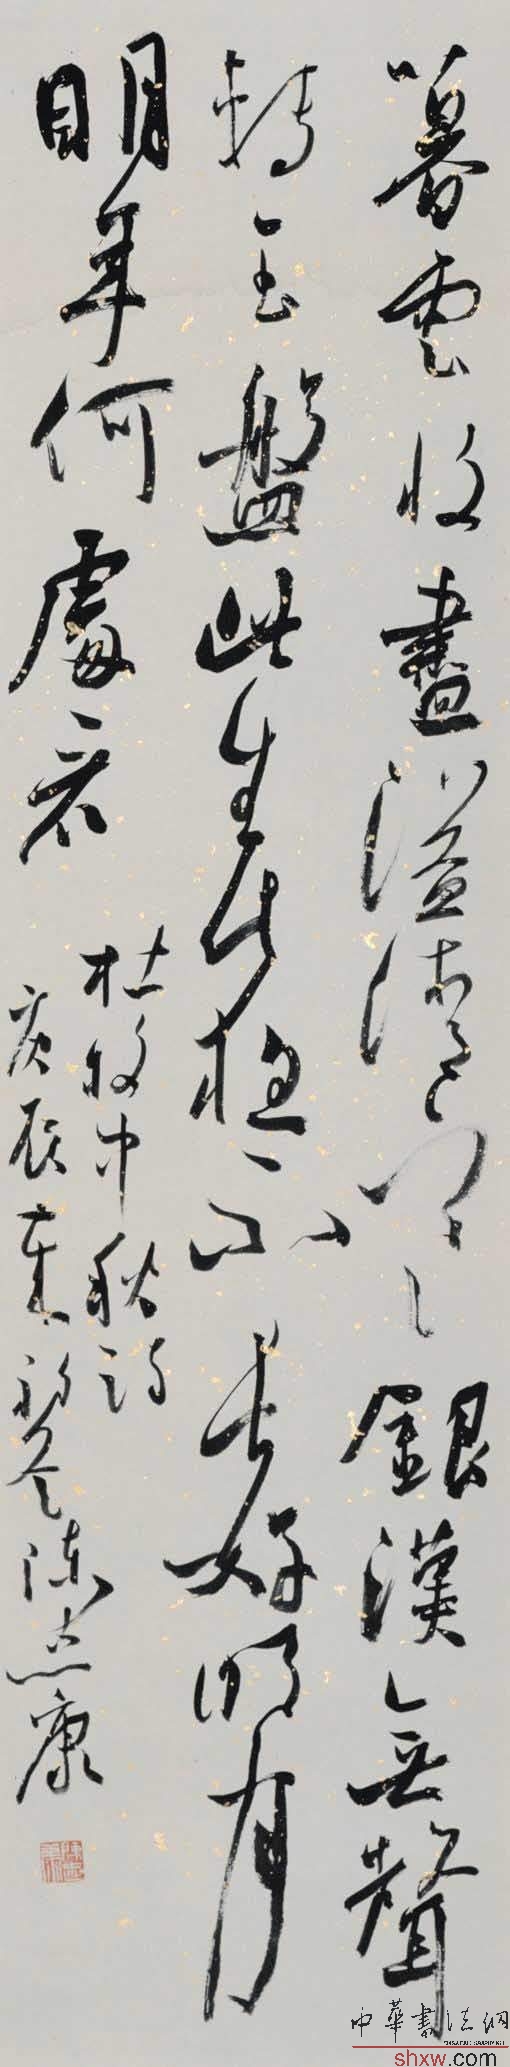 暮雲收盡溢清寒銀漢無聲
轉玉盤此生此夜不長好明月
明年何處看
杜牧中秋詩
庚辰春初冬陳志康
中華書法網
shxw.com